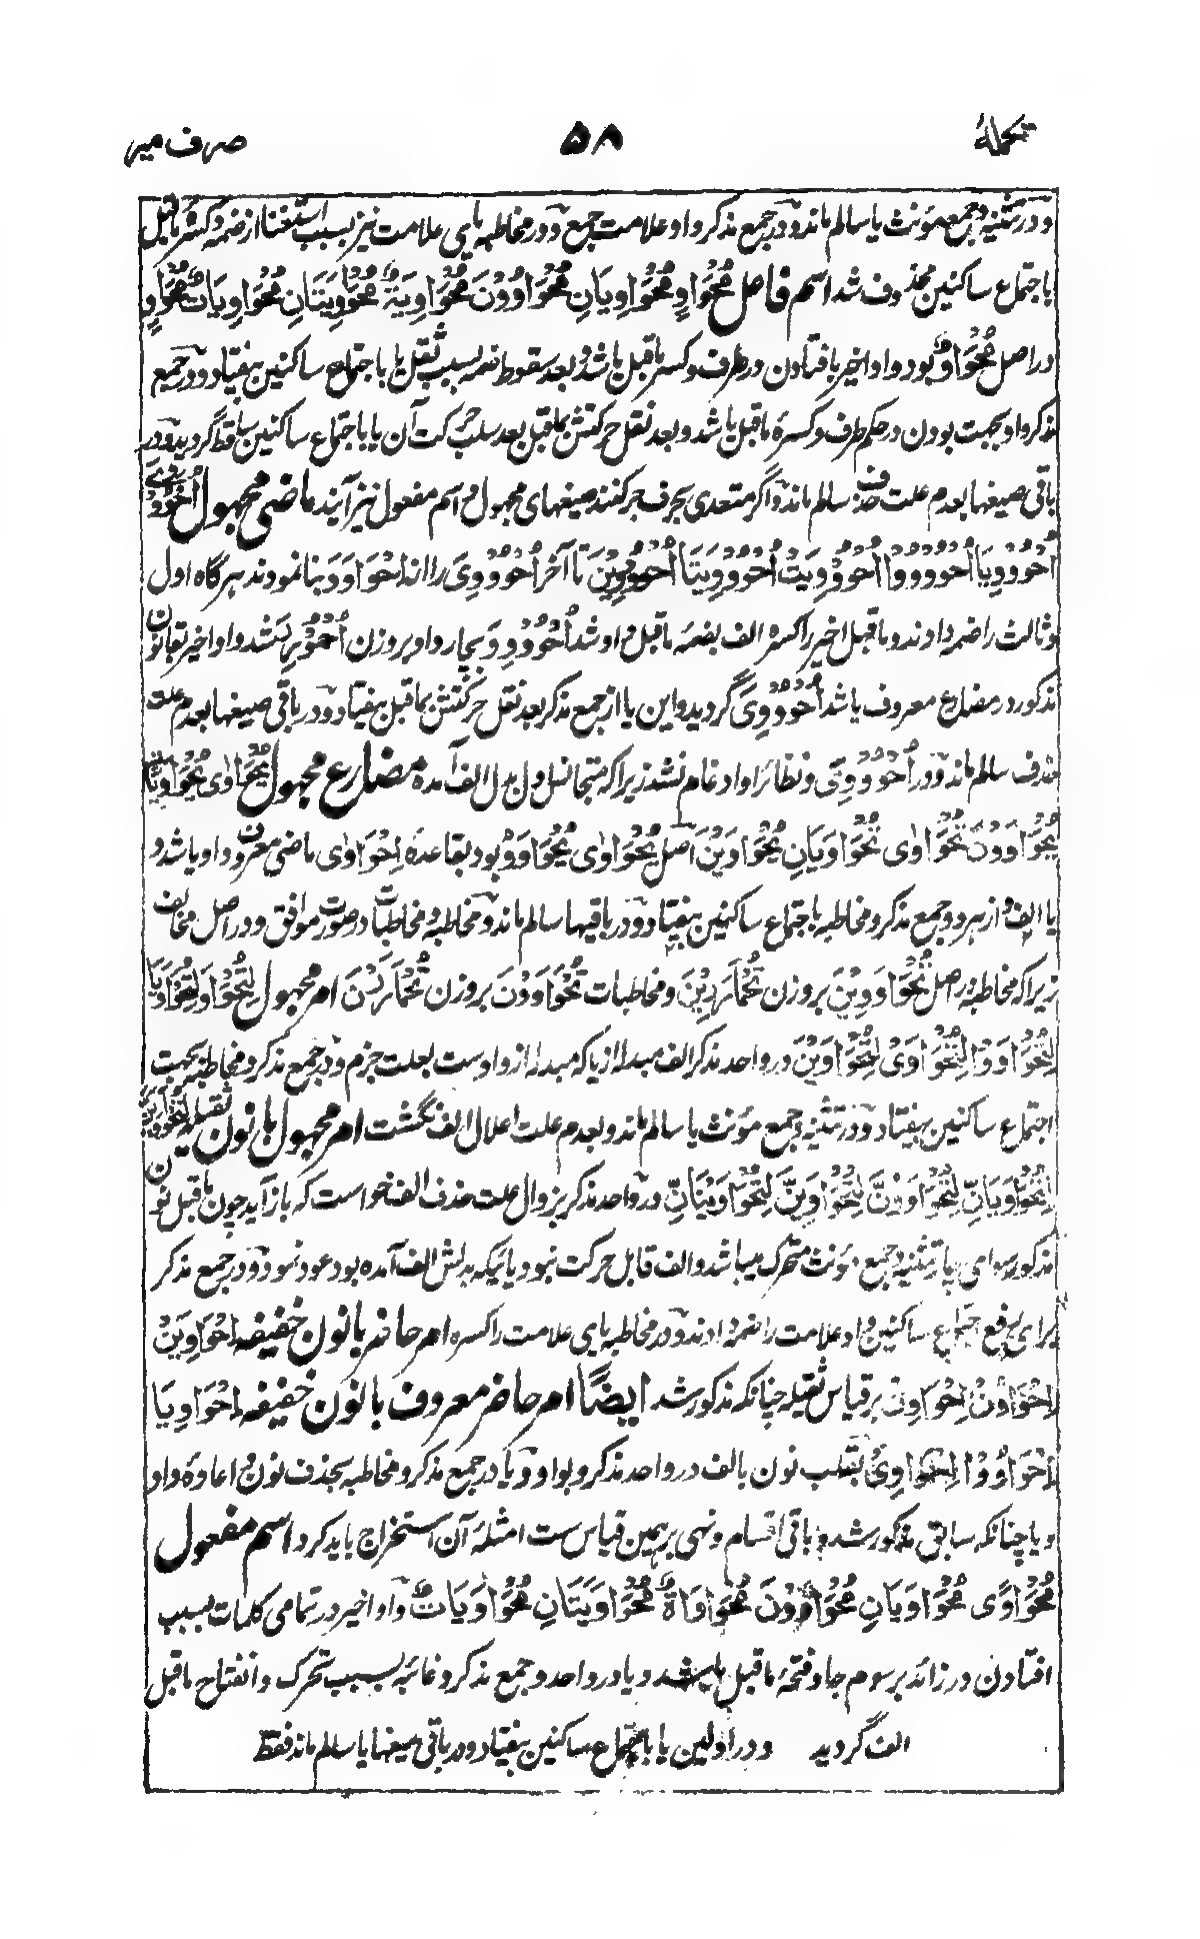 تکملهٔ ۵۸ صرف میر
و در تثنیه و جمع مؤنث یا سالم ماند و در جمع مذکر واو علامت جمع و در مخاطبه یای علامت نیز بسبب استغنا از ضمه و کسرهٔ ماقبل
باجتماع ساکنین محذوف شد اسم فاعل مُحْوَاوٍ مُحْوَاوِیَانِ مُحْوَاوُوْنَ مُحْوَاوِیَةٌ مُحْوَاوِیَتَانِ مُحْوَاوِیَاتٌ مُحْوَاوٍ
در اصل مُحْوَاوِوٌ بود واو اخیر بافتادن در طرف و کسر ماقبل یا شد و بعد سقوط ضمه بسبب ثقل یا باجتماع ساکنین بیفتاد و در جمع
مذکر واو بجهت بودن در حکم طرف و کسرهٔ ماقبل یا شد و بعد نقل حرکتش بماقبل بعد سلب حرکت آن یا باجتماع ساکنین ساقط گردید و در
باقی صیغها بعدم علت حذف سالم ماند و اگر متعدی بحرف جر کنند صیغهای مجهول و اسم مفعول نیز آیند ماضی مجهول اُحْوُوْوِیَ
اُحْوُوْوِیَا اُحْوُوْوُوْا اُحْوُوْوِیَتْ اُحْوُوْوِیَتَا اُحْوُوْوِیْنَ تا آخر اُحْوُوْوِیَ را از اِحْوَاوَوَ بنا نمودند هرگاه اول
و ثالث را ضمه دادند و ماقبل اخیر را کسره الف بضمهٔ ماقبل واو شد اُحْوُوْوِوَ بچار واو بروزن اُحْمُوْرِرَ شد واو اخیر بقانون
مذکور در مضارع معروف یا شد اُحْوُوْوِیَ گردید و این یا از جمع مذکر بعد نقل حرکتش بماقبل بیفتاد و در باقی صیغها بعدم علت
حذف سالم ماند و در اُحْوُوْوِیَ و نظائر او ادغام نشد زیرا که متجانس اول بدل الف آمده مضارع مجهول یُحْوَاوٰی یُحْوَاوَیَانِ
یُحْوَاوَوْنَ تُحْوَاوٰی تُحْوَاوَیَانِ یُحْوَاوَیْنَ اصل یُحْوَاوٰی یُحْوَاوَوُ بود بقاعدهٔ اِحْوَاوٰی ماضی معروف واو یا شد و
یا الف و از هر دو جمع مذکر و مخاطبه باجتماع ساکنین بیفتاد و در باقیها سالم ماند و مخاطبه و مخاطبات در صورت موافق و در اصل مخالف
زیرا که مخاطبه در اصل تُحْوَاوَوِیْنَ بروزن تُحْمَارَرِیْنَ و مخاطبات تُحْوَاوَوْنَ بروزن تُحْمَارَرْنَ امر مجهول لِتُحْوَاوَ لِتُحْوَاوَیَا
لِتُحْوَاوَوْا لِتُحْوَاوَیْ لِتُحْوَاوَیْنَ در واحد مذکر الف مبدله از یا که مبدله از واوست بعلت جزم و در جمع مذکر و مخاطبه بجهت
اجتماع ساکنین بیفتاد و در تثنیه و جمع مؤنث یا سالم ماند و بعدم علت اعلال الف نگشت امر مجهول بانون ثقیله
لِتُحْوَاوَیَانِّ لِتُحْوَاوَوُنَّ لِتُحْوَاوَیِنَّ لِتُحْوَاوَیْنَانِّ در واحد مذکر بزوال علت حذف الف خواست که باز آید چون ماقبل نون
مذکور سوای تثنیه و جمع مؤنث متحرک میباشد و الف قابل حرکت نبود یائیکه بدلش الف آمده بود عود نمود و در جمع مذکر
برای رفع اجتماع ساکنین واو علامت را ضمه دادند و در مخاطبه یای علامت را کسره امر حاضر بانون خفیفه اِحْوَاوِیَنْ
اِحْوَاوُنْ اِحْوَاوِنْ بر قیاس ثقیله چنانکه مذکور شد ایضًا امر حاضر معروف بانون خفیفه اِحْوَاوِیَا
اِحْوَاوُوْا اِحْوَاوِیْ بقلب نون بالف در واحد مذکر و بواو و یا در جمع مذکر و مخاطبه بحذف نون و اعادهٔ واو
و یا چنانکه سابق مذکور شد و باقی اقسام و نهی برهمین قیاس ست امثلهٔ آن استخراج باید کرد اسم مفعول
مُحْوَاوًی مُحْوَاوَیَانِ مُحْوَاوَوْنَ مُحْوَاوَاةٌ مُحْوَاوَیَتَانِ مُحْوَاوَیَاتٌ واو اخیر در تمامی کلمات بسبب
افتادن در زائد بر سوم جا و فتحهٔ ماقبل یا شد و یا در واحد و جمع مذکر و غائبه بسبب تحرک و انفتاح ماقبل
الف گردید و در اولین یا باجتماع ساکنین بیفتاد و در باقی صیغها یا سالم ماند فقط